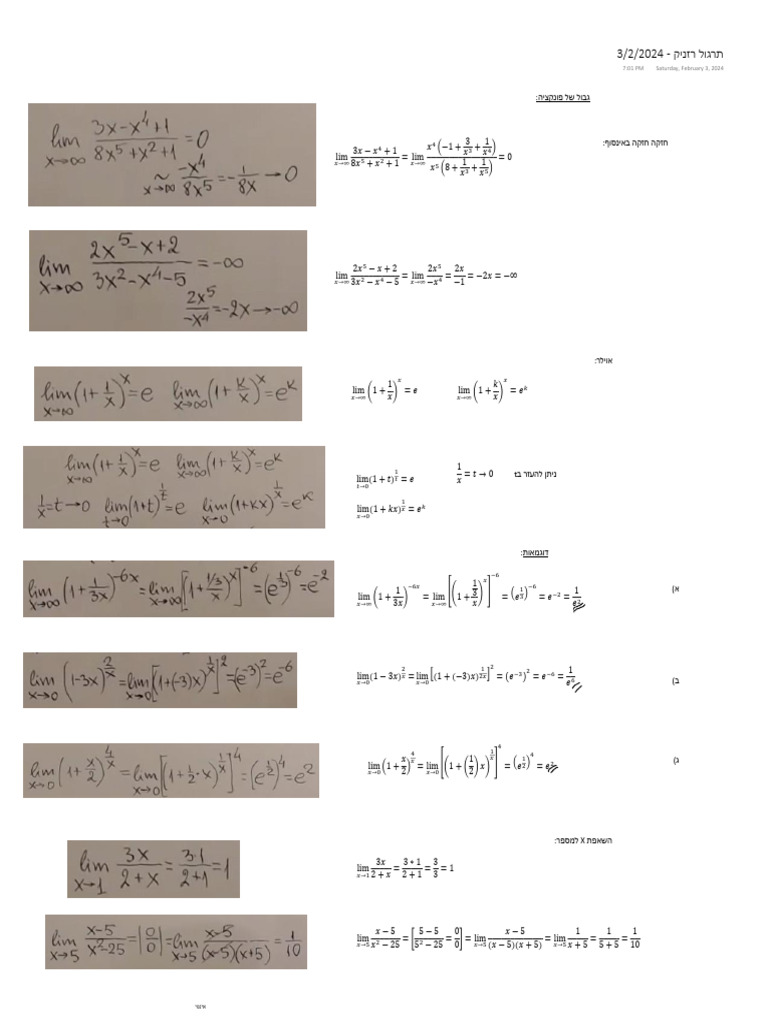 תרגול רזניק - 3/2/2024
Saturday, February 3, 2024 7:01 PM
גבול של פונקציה:
חזקה חזקה באינסוף:
lim x→∞ (3x-x⁴+1)/(8x⁵+x²+1) = 0
~ x→∞ -x⁴/8x⁵ = -1/8x → 0
lim x→∞ (3x-x⁴+1)/(8x⁵+x²+1) = lim x→∞ x⁴(-1+3/x³+1/x⁴)/x⁵(8+1/x³+1/x⁵) = 0
lim x→∞ (2x⁵-x+2)/(3x²-x⁴-5) = -∞
2x⁵/-x⁴ = -2x → -∞
lim x→∞ (2x⁵-x+2)/(3x²-x⁴-5) = lim x→∞ 2x⁵/-x⁴ = 2x/-1 = -2x = -∞
אוילר:
lim x→∞ (1+1/x)^x = e lim x→∞ (1+k/x)^x = e^k
lim x→∞ (1+1/x)^x = e lim x→∞ (1+k/x)^x = e^k
lim x→∞ (1+1/x)^x = e lim x→∞ (1+k/x)^x = e^k
1/x = t → 0 lim t→0 (1+t)^(1/t) = e lim x→0 (1+kx)^(1/x) = e^k
ניתן להעזר בt
1/x = t → 0
lim t→0 (1+t)^(1/t) = e
lim x→0 (1+kx)^(1/x) = e^k
דוגמאות:
א)
lim x→∞ (1+1/3x)^(-6x) = lim x→∞ [(1+(1/3)/x)^x]^(-6) = (e^(1/3))^(-6) = e^(-2)
lim x→∞ (1+1/3x)^(-6x) = lim x→∞ [(1+(1/3)/x)^x]^(-6) = (e^(1/3))^(-6) = e^(-2) = 1/e²
ב)
lim x→0 (1-3x)^(2/x) = lim x→0 [(1+(-3)x)^(1/x)]² = (e^(-3))² = e^(-6)
lim x→0 (1-3x)^(2/x) = lim x→0 [(1+(-3)x)^(1/2x)]² = (e^(-3))² = e^(-6) = 1/e⁶
ג)
lim x→0 (1+x/2)^(4/x) = lim x→0 [(1+1/2·x)^(1/x)]⁴ = (e^(1/2))⁴ = e²
lim x→0 (1+x/2)^(4/x) = lim x→0 [(1+(1/2)x)^(1/x)]⁴ = (e^(1/2))⁴ = e²
השאפת X למספר:
lim x→1 3x/(2+x) = 3·1/(2+1) = 1
lim x→1 3x/(2+x) = (3*1)/(2+1) = 3/3 = 1
lim x→5 (x-5)/(x²-25) = |0/0| = lim x→5 (x-5)/(x-5)(x+5) = 1/10
lim x→5 (x-5)/(x²-25) = [(5-5)/(5²-25) = 0/0] = lim x→5 (x-5)/(x-5)(x+5) = lim x→5 1/(x+5) = 1/(5+5) = 1/10